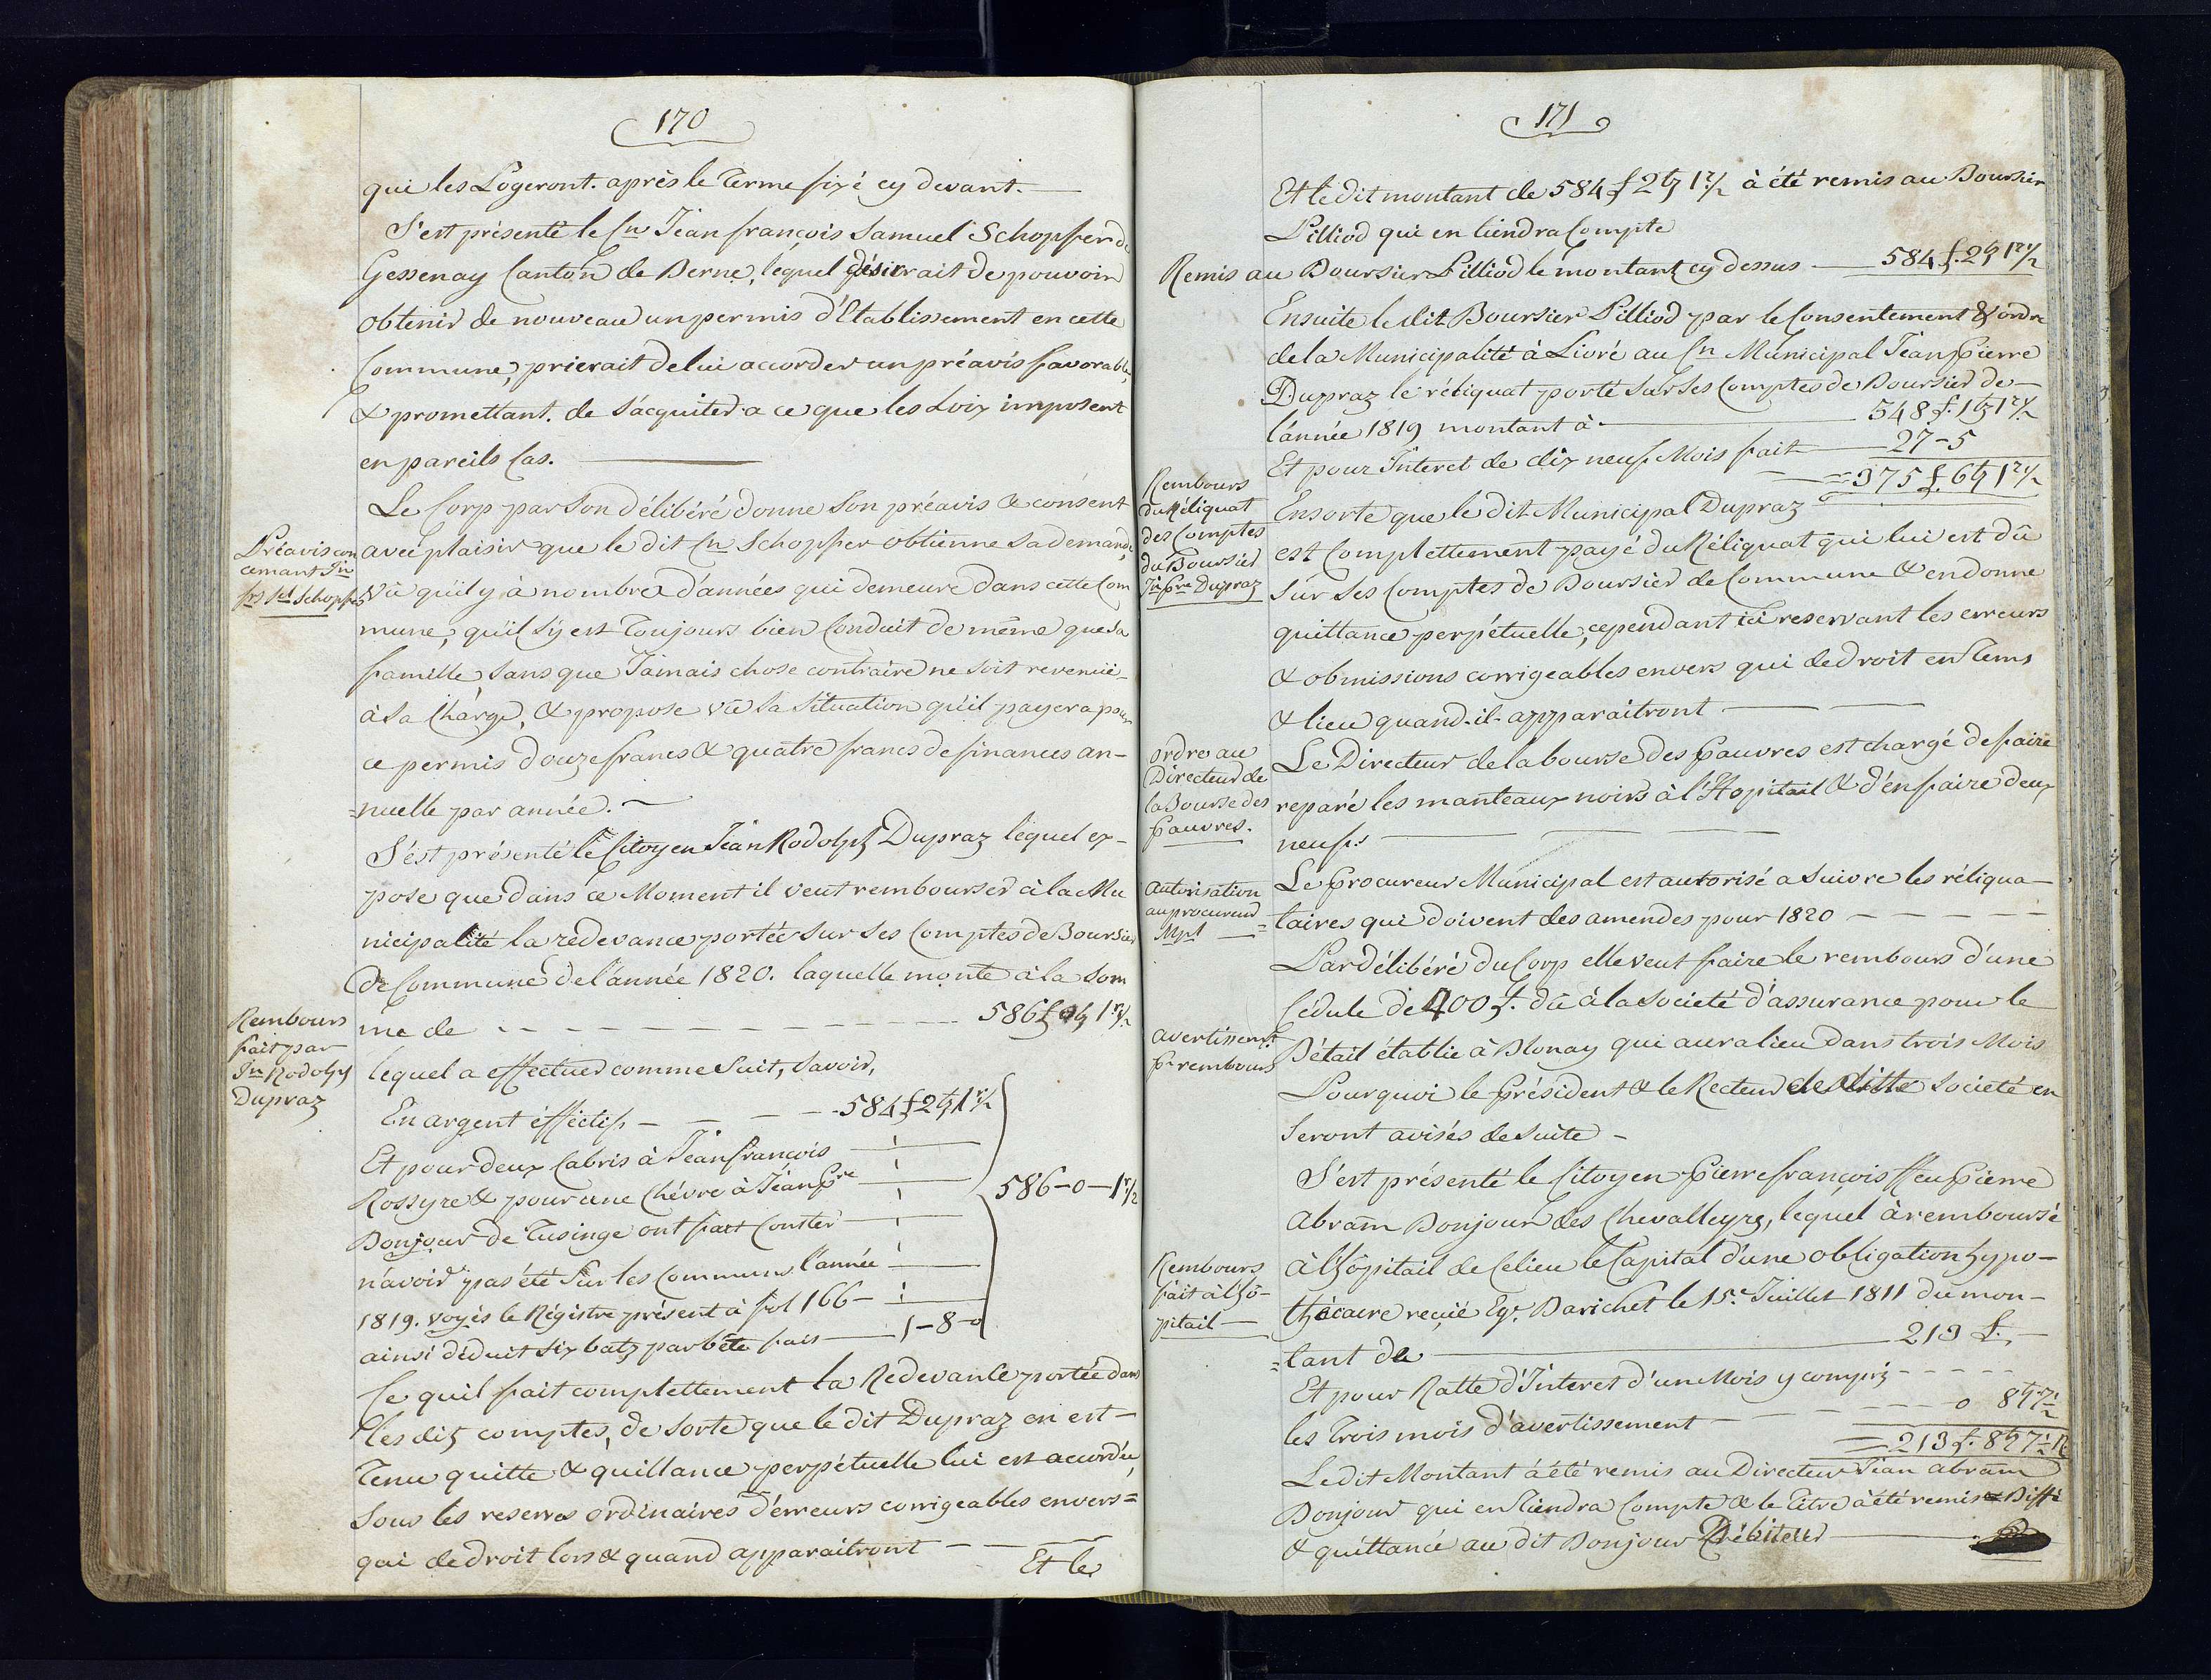 170
qui les Logeront. après le Terme fixé cy devant.
S'est présenté le Cn Jean françois Samuel Schopfer de
Gessenay Canton de Berne, lequel désirrait de pouvoir
obtenir de nouveau un permis d'Etablissement en cette
Commune, prierait de lui accorder un préavis favorable,
& promettant. de s'acquiter a ce que les Loix imposent
en pareils Cas.
Le Corp par son délibéré donne son préavis & consent
avec plaisir que le dit Cn Schopfer obtienne sa demande,
Vû qu'il y à nombre d'années qui demeure dans cette Com
mune, qu'il s'y est Toujours bien Conduit de même que sa
famille, sans que Jamais chose contraire ne soit revenüe
à sa Charge, & propose vû sa situation qu'il payera pour
ce permis douze francs & quatre francs de finances an-
=nuelle par année.
Préavis con
cernant Jn
frs Sel Schopfer
S'est présenté le Citoyen Jean Rodolph Dupraz lequel ex-
pose que dans ce Moment il veut rembourser à la Mu
nicipalité la redevance portée sur ses Comptes de Boursier
de Commune de l'année 1820. laquelle monte à la som
me de 586 f 0 bz 1 r ½
Rembours
fait par
Jn Rodolph
Dupraz
lequel a effectuer comme suit, savoir,
En argent éffectif - 584 f 2 bz 1 r ½
Et pour deux Cabris à Jean françois
Rossyre & pour une Chévre à Jean Pre
Bonjour de Tusinge ont fait Conster
n'avoir pas été sur les Communs l'année
1819. voyés le Régistre présent à fol 166-
ainsi déduit six batz par bête fait 1-8-0
586-0-1 r ½
Ce quil fait complettement la Redevance portée dans
les dits comptes, de sorte que le dit Dupraz en est-
Tenu quitte & quittance perpétuelle lui est accordée,
sous les reserves ordinaires d'erreurs corrigeables envers=
qui de droit lors & quand apparaitront
Et le
171
Et le dit montant de 584 f 2 bz 1 r ½ à été remis au Boursier
Pilliod qui en tiendra Compte
Remis au Boursier Pilliod le montant cy dessus 584 f. 2 bz 1 r ½
Ensuite le dit Boursier Pilliod par le Consentement & ordre
de la Municipalité à Livré au Cn Municipal Jean Pierre
Dupraz le réliquat porté sur ses Comptes de Boursier de-
l'année 1819 montant à 548 f. 1 bz 1 r ½
Et pour Interet de dix neuf Mois fait 27-5
=375 f. 6 bz 1 r ½
Rembours
du Réliquat
des Comptes
du Boursier
Jn Pre Dupraz
Ensorte que le dit Municipal Dupraz
est Complettement payé du Réliquat qui lui est dû
sur ses Comptes de Boursier de Commune & en donne
quittance perpétuelle, cependant ici reservant les erreurs
& obmissions corrigeables envers qui de droit en Tems
& lieu quand-il-apparaitront
ordre au
Directeur de
la Bourse des
Pauvres.
Le Directeur de la bourse des Pauvres est chargé de faire
reparé les manteaux noirs à l'Hopitail & d'en faire deux
neufs
autorisation
au procureur
Mpl
Le Procureur Municipal est autorisé a suivre les réliqua-
=taires qui doivent des amendes pour 1820
Par délibéré du Corp elle veut faire le rembours d'une
Cédule de 400 f. dû à la Societé d'assurance pour le
avertissemt
pr rembours
Bétail établie à Blonay qui aura lieu dans trois Mois
Pourquoi le Président & le Recteur de ditte Societé en
seront avisés de suite -
S'est présenté le Citoyen Pierre françois ffeu Pierre
Abram Bonjour des Chevalleyrs, lequel à remboursé
à l'hôpitail de Celieu le Capital d'une obligation hypo-
thécaire reçüé Egr. Darichet le 15e Juillet 1811 du mon-
=tant de 213 f.
Rembours
fait à l'hô-
pitail
Et pour Ratte d'Interet d'un Mois y compris
les Trois mois d'avertissement 0 8 bz 7 ½
213 f. 8 bz 7 ½ R
Le dit Montant à été remis au Directeur Jean Abram
Bonjour qui en Tiendra Compte & le Titre à été remis & Biffé
& quittancé au dit Bonjour Débiteur